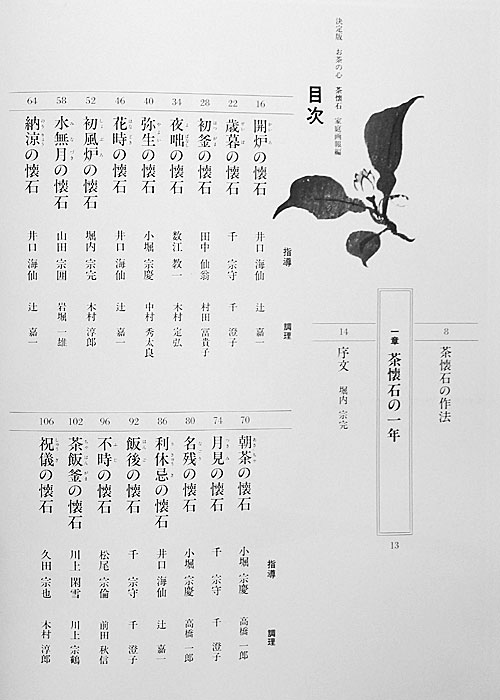 決定版 お茶の心 茶懐石 家庭画報編
目次
8 茶懐石の作法
一章 茶懐石の一年 13
14 序文 堀内 宗完
指導 調理
16 開炉の懐石 井口 海仙 辻 嘉一
22 歳暮の懐石 千 宗守 千 澄子
28 初釜の懐石 田中 仙翁 村田 富貴子
34 夜咄の懐石 数江 教一 木村 定弘
40 弥生の懐石 小堀 宗慶 中村 秀太良
46 花時の懐石 井口 海仙 辻 嘉一
52 初風炉の懐石 堀内 宗完 木村 淳郎
58 水無月の懐石 山田 宗囲 岩堀 一雄
64 納涼の懐石 井口 海仙 辻 嘉一
指導 調理
70 朝茶の懐石 小堀 宗慶 高橋 一郎
74 月見の懐石 千 宗守 千 澄子
80 名残の懐石 小堀 宗慶 高橋 一郎
86 利休忌の懐石 井口 海仙 辻 嘉一
92 飯後の懐石 千 宗守 千 澄子
96 不時の懐石 松尾 宗倫 前田 秋信
102 茶飯釜の懐石 川上 閑雪 川上 宗鶴
106 祝儀の懐石 久田 宗也 木村 淳郎